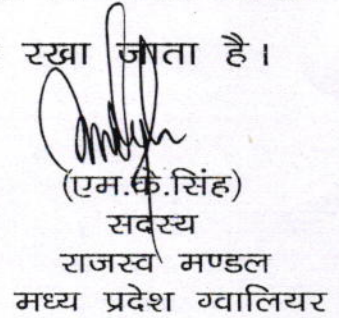 रखा जाता है।
(एम.के.सिंह)
सदस्य
राजस्व मण्डल
मध्य प्रदेश ग्वालियर